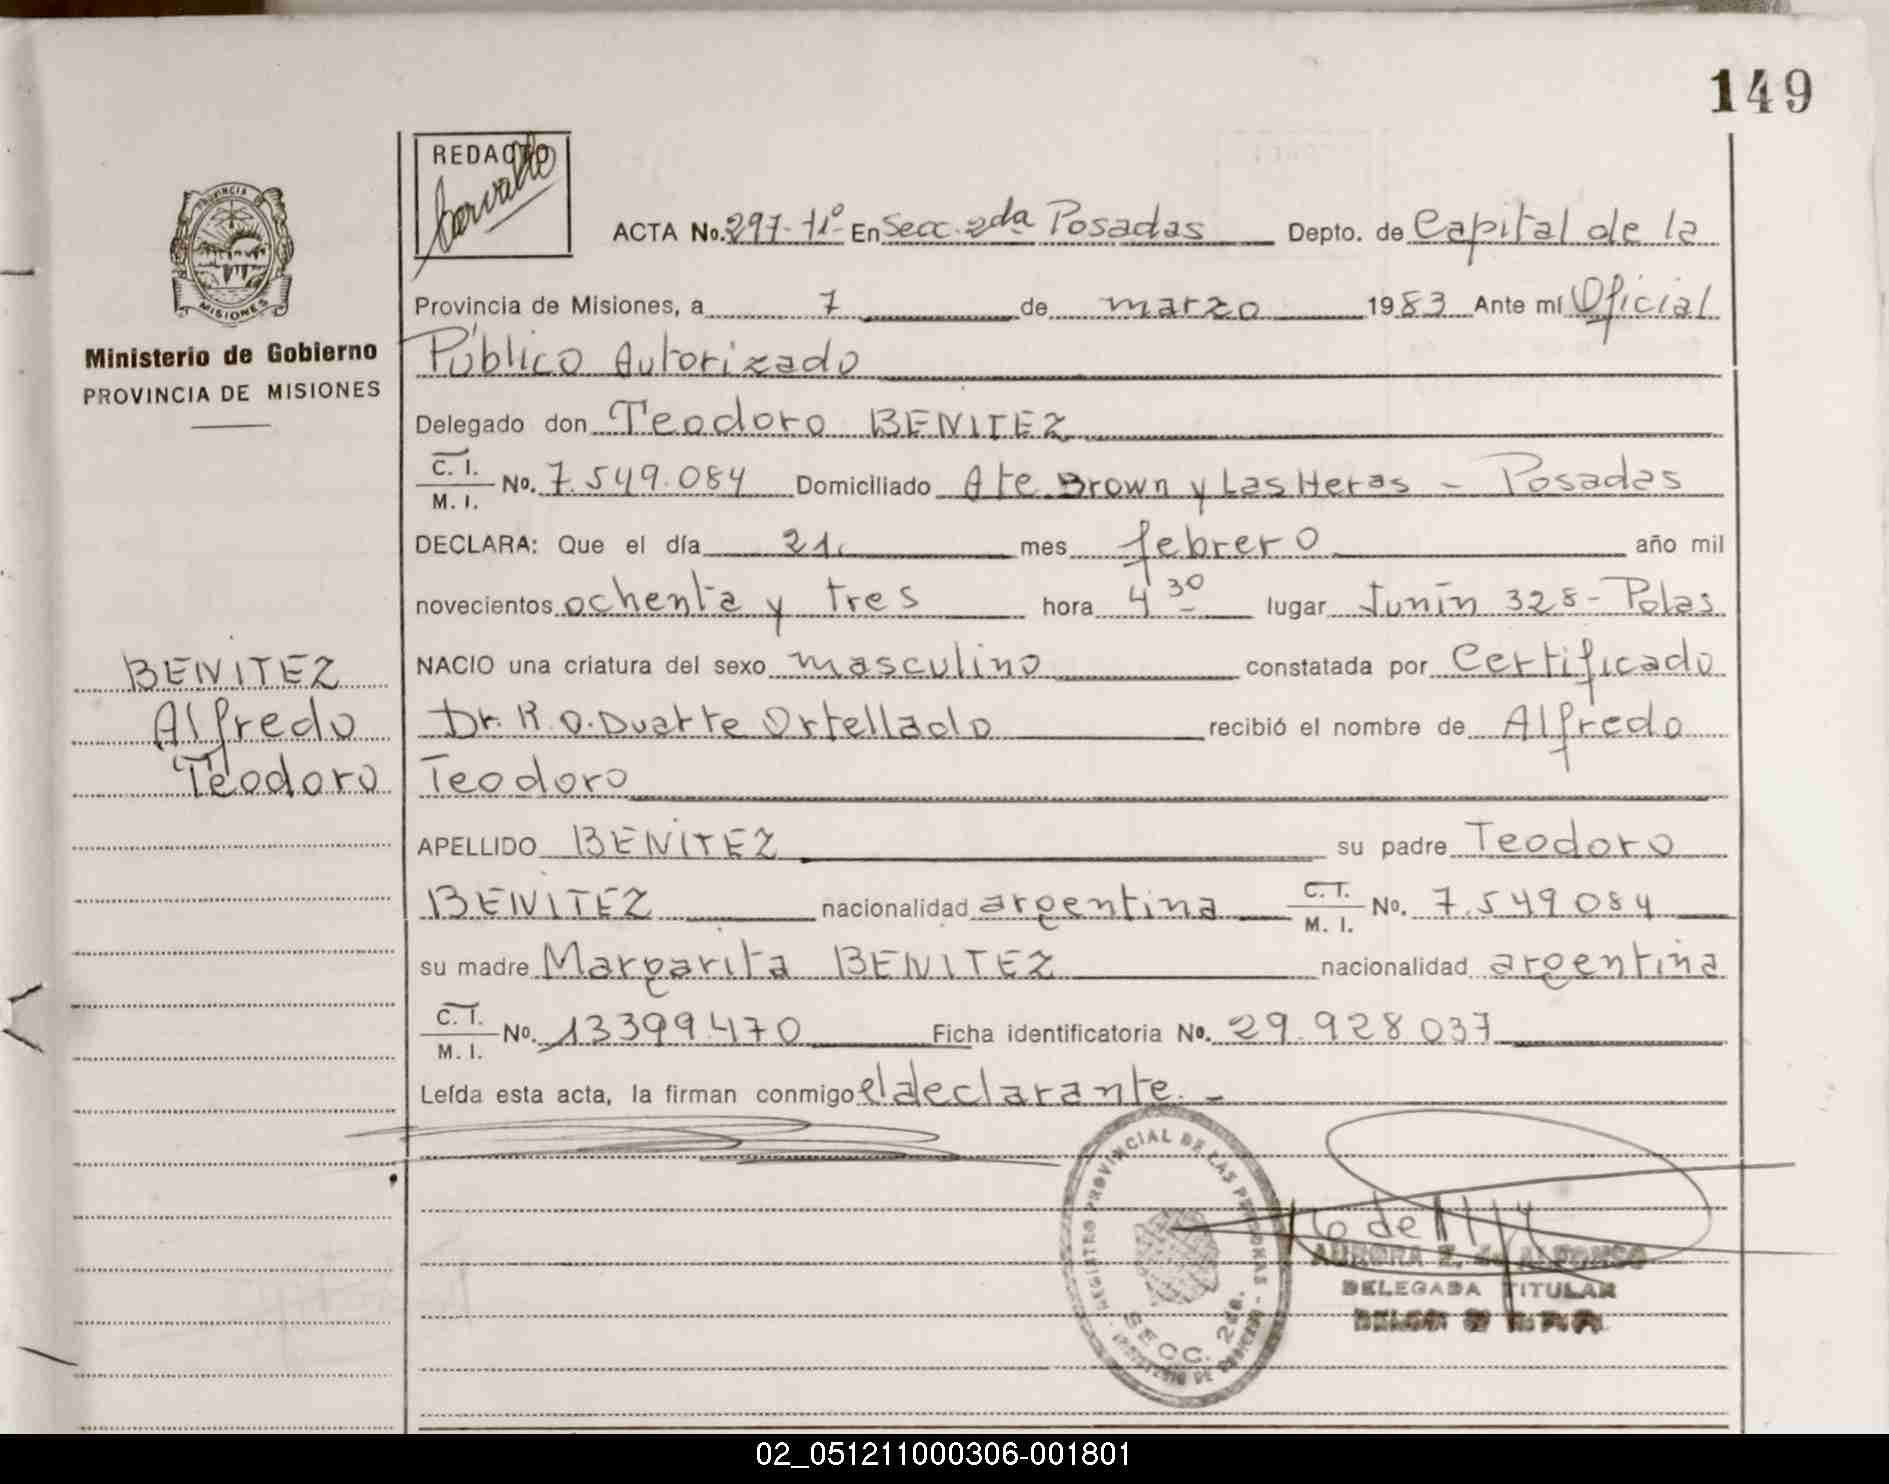 149
REDACTO
ACTA No. 297-tIº- En Secc. 2da Posadas Depto. de Capital de la
PROVINCIA DE MISIONES
Provincia de Misiones, a 7 de marzo 1983 Ante mí Oficial
Ministerio de Gobierno
PROVINCIA DE MISIONES
Público Autorizado
Delegado don Teodoro BENITEZ
C. I.
M. I. No. 7.549.084 Domiciliado Ate. Brown y Las Heras - Posadas
DECLARA: Que el día 21 mes febrero año mil
novecientos ochenta y tres hora 4 30 lugar Junín 328 - Pdas
BENITEZ
Alfredo
Teodoro
NACIO una criatura del sexo masculino constatada por Certificado
Dr. R. O. Duarte Ortellado recibió el nombre de Alfredo
Teodoro
APELLIDO BENITEZ su padre Teodoro
BENITEZ nacionalidad argentina C.I. M. I. No. 7.549 084
su madre Margarita BENITEZ nacionalidad argentina
C.I.
M. I. No. 13399.470 Ficha identificatoria No. 29.928.037
Leída esta acta, la firman conmigo el declarante. -
REGISTRO PROVINCIAL DE LAS PERSONAS
SECC. 2da.
MINISTERIO DE GOBIERNO
AURORA Z. de ALFONSO
DELEGADA TITULAR
02_051211000306-001801